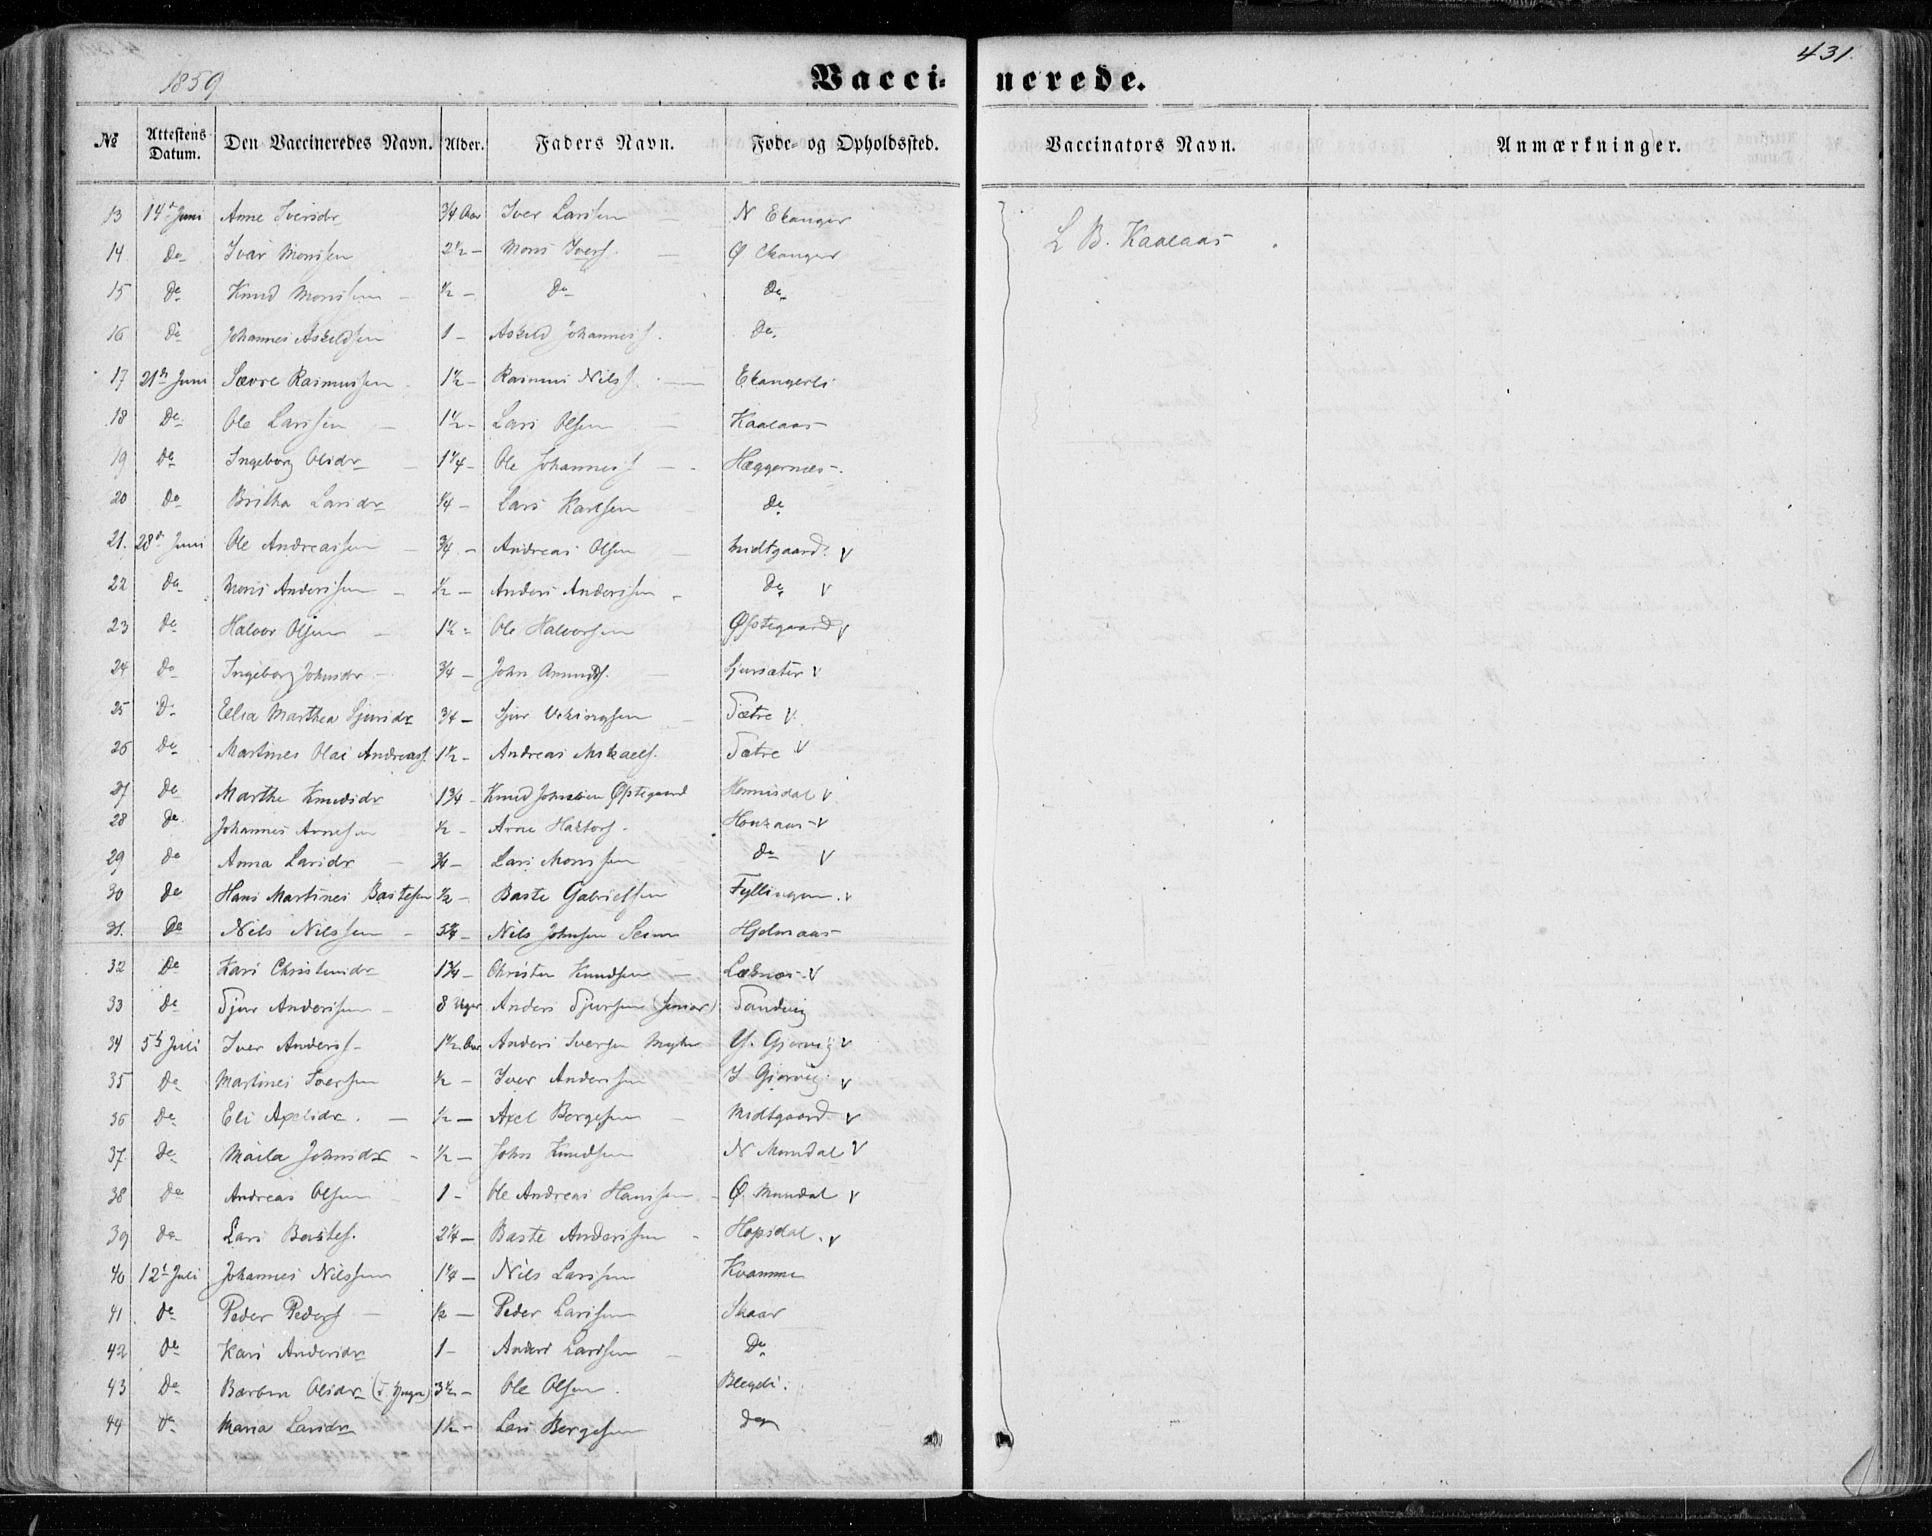 1859
Vacci- nerede.
431.
№ Attestens Datum. Den Vaccineredes Navn. Alder. Faders Navn. Føde- og Opholdssted. Vaccinators Navn. Anmærkninger.
13 14de Juni Anne Iversdr 3/4 Aar Iver Larssen N Ekanger L B. Kaalaas
14 Do Ivar Monssen 2 1/2 - Mons Ivers. Ø Ekanger
15 Do Knud Monssen 1/2 - Do Do
16 Do Johannes Askeldsen 1 - Askeld Johanness. Do
17 21de Juni Sævre Rasmussen 1 1/2 - Rasmus Nilss. Ekangerli
18 Do Ole Larssen 1 1/2 - Lars Olsen Kaalaas
19 Do Ingeborg Olsdr 1 1/4 - Ole Johanness Hæggernæs
20 Do Britha Larsdr 1/4 - Lars Karlsen Do
21. 28de Juni Ole Andreassen 3/4 - Andreas Olsen Midtgaard. V
22 Do Mons Anderssen 1/2 - Anders Anderssen Do V
23 Do Halvor Olsen 1 1/2 - Ole Halvorsen Øfstegaard V
24 Do Ingeborg Johnsdr 3/4 - John Amunds. Sjursæter V
25 Do Elia Marthea Sjursdr 3/4 - Sjur Vikingsen Sætre V.
26 Do Martines Olai Andreass. 1 1/2 - Andreas Mikaels. Sætre V
27 Do Marthe Knudsdr 1 3/4 - Knud Johnsen Øfstegaard Hennisdal V
28 Do Johannes Arnesen 1/2 - Arne Haktors. Honkaas - V
29 Do Anna Larsdr 3/4 - Lars Monssen do V
30 do Hans Martines Bastesen 1/2 - Baste Gabrielsen Fyllingen. v
31. Do Nils Nilssen 5/4 - Nils Johnsen Seim Hjelmaas
32 Do Kari Christensdr 1 3/4 - Christen Knudsen Læknes - V
33 do Sjur Anderssen 8 Uger Anders Sjursen (senior) Sandvig
34 5te Juli Iver Anderss. 1 1/2 Aar Anders Iversen Myhr Y. Gjervig V
35 Do Martines Iversen 1/2 - Iver Anderssen I Gjervig V
36 Do Eli Axelsdr. 1/2 - Axel Bergesen Midtgaard V
37 Do Maila Johnsdr 1/2 - John Knudsen N Mundal V
38 Do Andreas Olsen 1 - Ole Andreas Hanssen Ø. Mundal V
39 Do Lars Bastes. 2 1/4 - Baste Anderssen Hopsdal. V
40 12te Juli Johannes Nilssen 1 1/4 - Nils Larssen Kvamme
41 do Peder Peders 1/2 - Peder Larssen Skaar
42 do Kari Andersdr 1 - Anders Larssen Do
43 Do Barbra Olsdr 3 1/2 - Ole Olsen.
44 do Maria Larsdr 1 1/2 - Lars Bergesen do